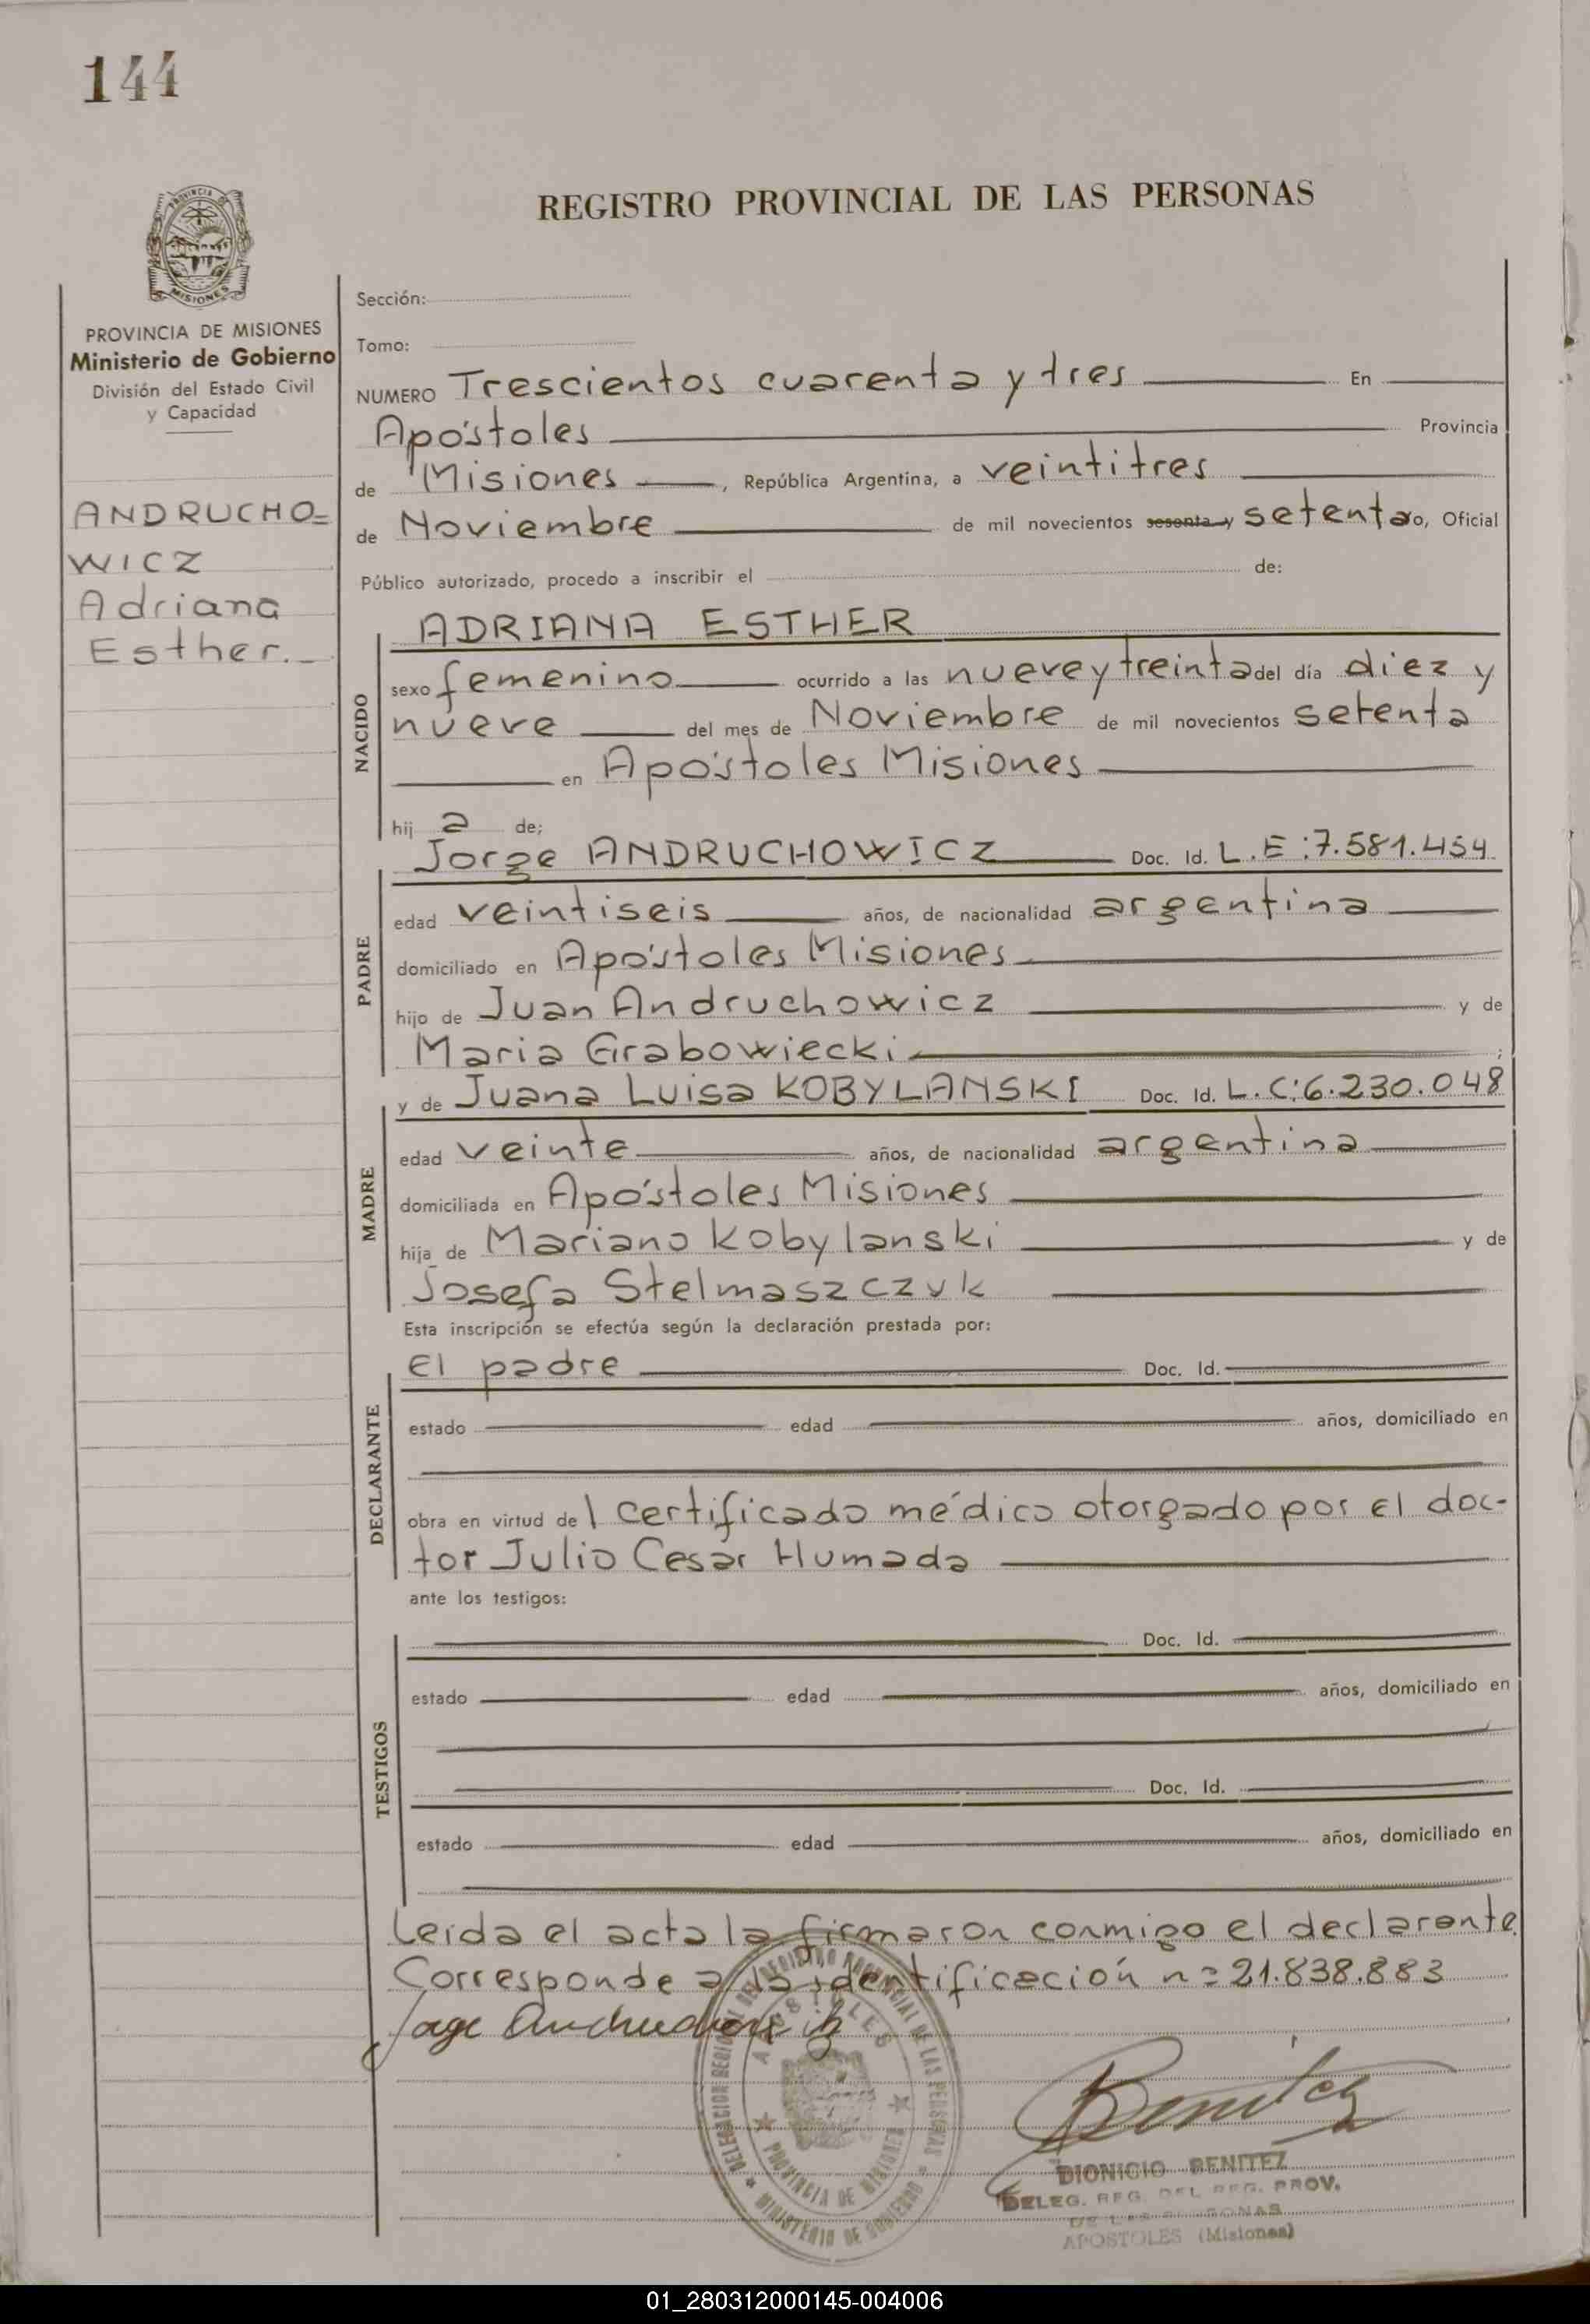 144
REGISTRO PROVINCIAL DE LAS PERSONAS
PROVINCIA DE
MISIONES
PROVINCIA DE MISIONES
Ministerio de Gobierno
División del Estado Civil
y Capacidad
ANDRUCHO=
WICZ
Adriana
Esther._
Sección:
Tomo:
NUMERO Trescientos cuarenta y tres En
Apóstoles Provincia
de Misiones, República Argentina, a veintitres
de Noviembre de mil novecientos sesenta y setenta yo, Oficial
Público autorizado, procedo a inscribir el de:
NACIDO
ADRIANA ESTHER
sexo femenino ocurrido a las nueve y treinta del día diez y
nueve del mes de Noviembre de mil novecientos setenta
en Apóstoles Misiones
hij a de;
PADRE
Jorge ANDRUCHOWICZ Doc. Id. L.E:7.581.454
edad veintiseis años, de nacionalidad argentina
domiciliado en Apóstoles Misiones
hijo de Juan Andruchowicz y de
Maria Grabowiecki ;
MADRE
y de Juana Luisa KOBYLANSKI Doc. Id. L.C:6.230.048
edad veinte años, de nacionalidad argentina
domiciliada en Apóstoles Misiones
hija de Mariano Kobylanski y de
Josefa Stelmaszczuk
Esta inscripción se efectúa según la declaración prestada por:
DECLARANTE
El padre Doc. Id.
estado edad años, domiciliado en
obra en virtud del certificado médico otorgado por el doc-
tor Julio Cesar Humada
ante los testigos:
TESTIGOS
Doc. Id.
estado edad años, domiciliado en
Doc. Id.
estado edad años, domiciliado en
Leida el acta la firmaron conmigo el declarante
Corresponde a la identificación n=21.838.883
Jorge Andruchowicz
DELEGACION REGIONAL DEL REGISTRO PROVINCIAL DE LAS PERSONAS
APOSTOLES
PROVINCIA DE MISIONES
MINISTERIO DE GOBIERNO
Benitez
DIONICIO BENITEZ
DELEG. REG. DEL REG. PROV.
DE LAS PERSONAS
APOSTOLES (Misiones)
01_280312000145-004006